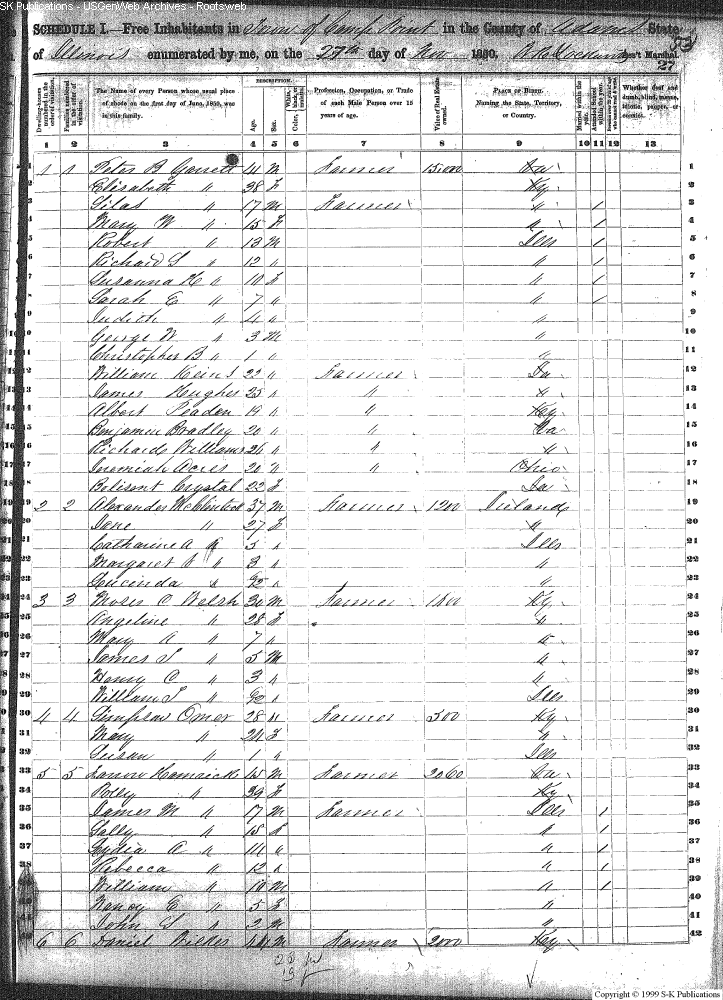 SK Publications - USGenWeb Archives - Rootsweb
SCHEDULE I.—Free Inhabitants in Town of Camp Point in the County of Adams State
of Illinois enumerated by me, on the 27th day of Nov 1850. Ass't Marshal.
27
Dwelling-houses numbered in the order of visitation.
Families numbered in the order of visitation.
The Name of every Person whose usual place of abode on the first day of June, 1850, was in this family.
DESCRIPTION.
Age.
Sex.
Profession, Occupation, or Trade of each Male Person over 15 years of age.
Value of Real Estate owned.
PLACE OF BIRTH. Naming the State, Territory, or Country.
Married within the year.
Whether deaf and dumb, blind, insane, idiotic, pauper, or convict.
1 2 3 4 5 6 7 8 9 10 11 12 13
1 1 1 Peter B Garrett M Farmer 15,000 1
2 Elizabeth " 38 F Ky 2
3 Silas " 17 M Farmer " / 3
4 Mary W " 15 F " / 4
5 Robert " 13 M Ills / 5
6 Richard S " 12 " " / 6
7 Susanna H " 10 F " / 7
8 Sarah E " 7 " " / 8
9 Judith " 4 " " 9
10 George W " 3 M " 10
11 Christopher B " 1 " " 11
12 William 22 " Farmer 12
13 James Hughes 25 " " " 13
14 Albert 19 " " Ky 14
15 Benjamin Bradley 20 " " 15
16 Richard Williams " " " 16
17 Jeremiah Acres 20 " " Ohio 17
18 Crystal 22 F 18
19 2 2 Alexander McClintock 37 M Farmer 1200 Ireland 19
20 Jane " 27 F " 20
21 Catharine A " 5 " Ills 21
22 Margaret " 3 " " 22
23 Lucinda " " " 23
24 3 3 Moses C Welsh 30 M Farmer Ky 24
25 Angeline " 28 F " 25
26 Mary A " 7 " " 26
27 James " 5 M " 27
28 Henry C " 3 " " 28
29 William " " Ills 29
30 4 4 Omer 28 M Farmer 500 Ky 30
31 Mary " 24 F " 31
32 Susan " 1 " Ills 32
33 5 5 Hamrick M Farmer 2060 33
34 Polly " 39 F Ky 34
35 James M " 17 M Farmer Ills / 35
36 Sally " 15 F " / 36
37 Lydia " 14 " " / 37
38 Rebecca " 12 " " / 38
39 William " 10 M " / 39
40 Nancy E " 5 F " 40
41 John " 2 M " 41
42 6 6 Daniel 44 M Farmer 2000 Ky 42
Copyright © 1999 S-K Publications